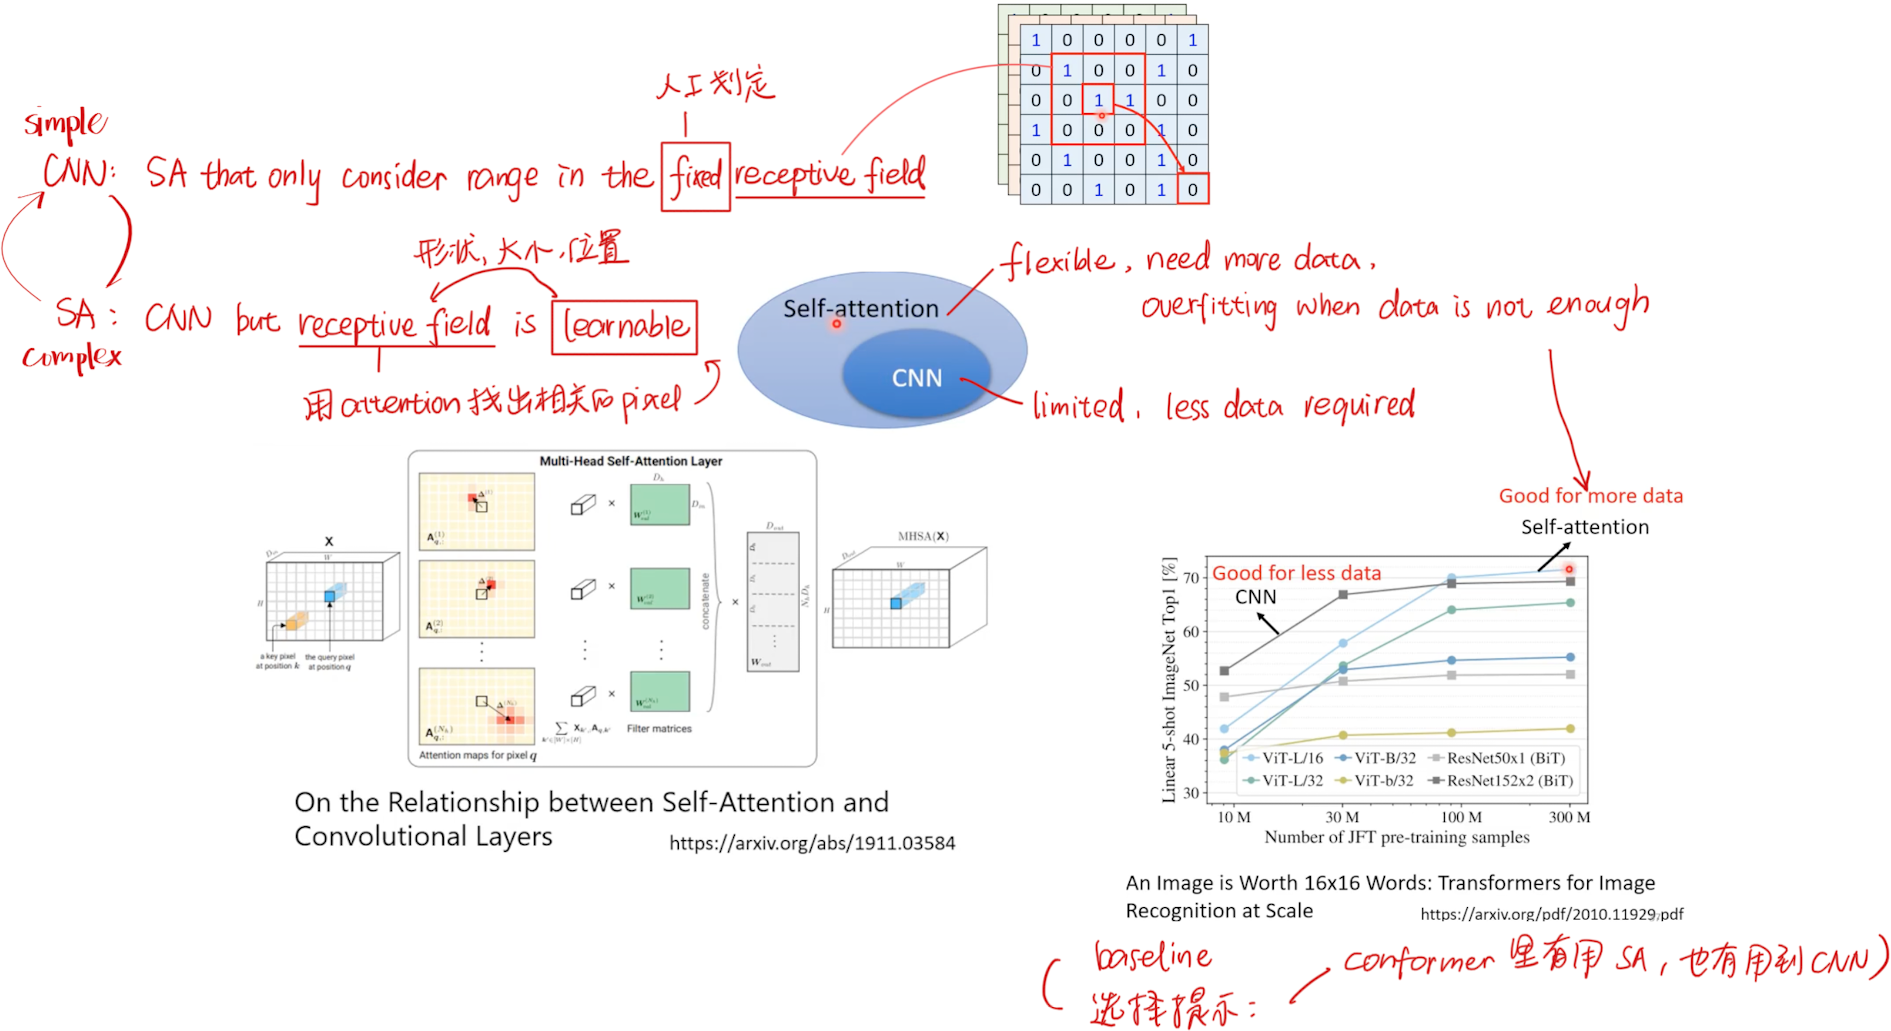 1 0 0 0 0 1
0 1 0 0 1 0
0 0 1 1 0 0
1 0 0 0 1 0
0 1 0 0 1 0
0 0 1 0 1 0
人工划定
simple
CNN: SA that only consider range in the fixed receptive field
形状,大小,位置
SA: CNN but receptive field is learnable
complex
用attention找出相关的pixel
Self-attention
CNN
flexible, need more data,
overfitting when data is not enough
limited, less data required
Multi-Head Self-Attention Layer
X
W
H
a key pixel
at position k
the query pixel
at position q
Attention maps for pixel q
Filter matrices
concatenate
MHSA(X)
W
H
On the Relationship between Self-Attention and
Convolutional Layers
https://arxiv.org/abs/1911.03584
Good for more data
Self-attention
Good for less data
CNN
Linear 5-shot ImageNet Top1 [%]
70
60
50
40
30
ViT-L/16
ViT-B/32
ResNet50x1 (BiT)
ViT-L/32
ViT-b/32
ResNet152x2 (BiT)
10 M
30 M
100 M
300 M
Number of JFT pre-training samples
An Image is Worth 16x16 Words: Transformers for Image
Recognition at Scale
https://arxiv.org/pdf/2010.11929.pdf
(baseline
选择提示:
conformer 里有用 SA, 也有用到 CNN)